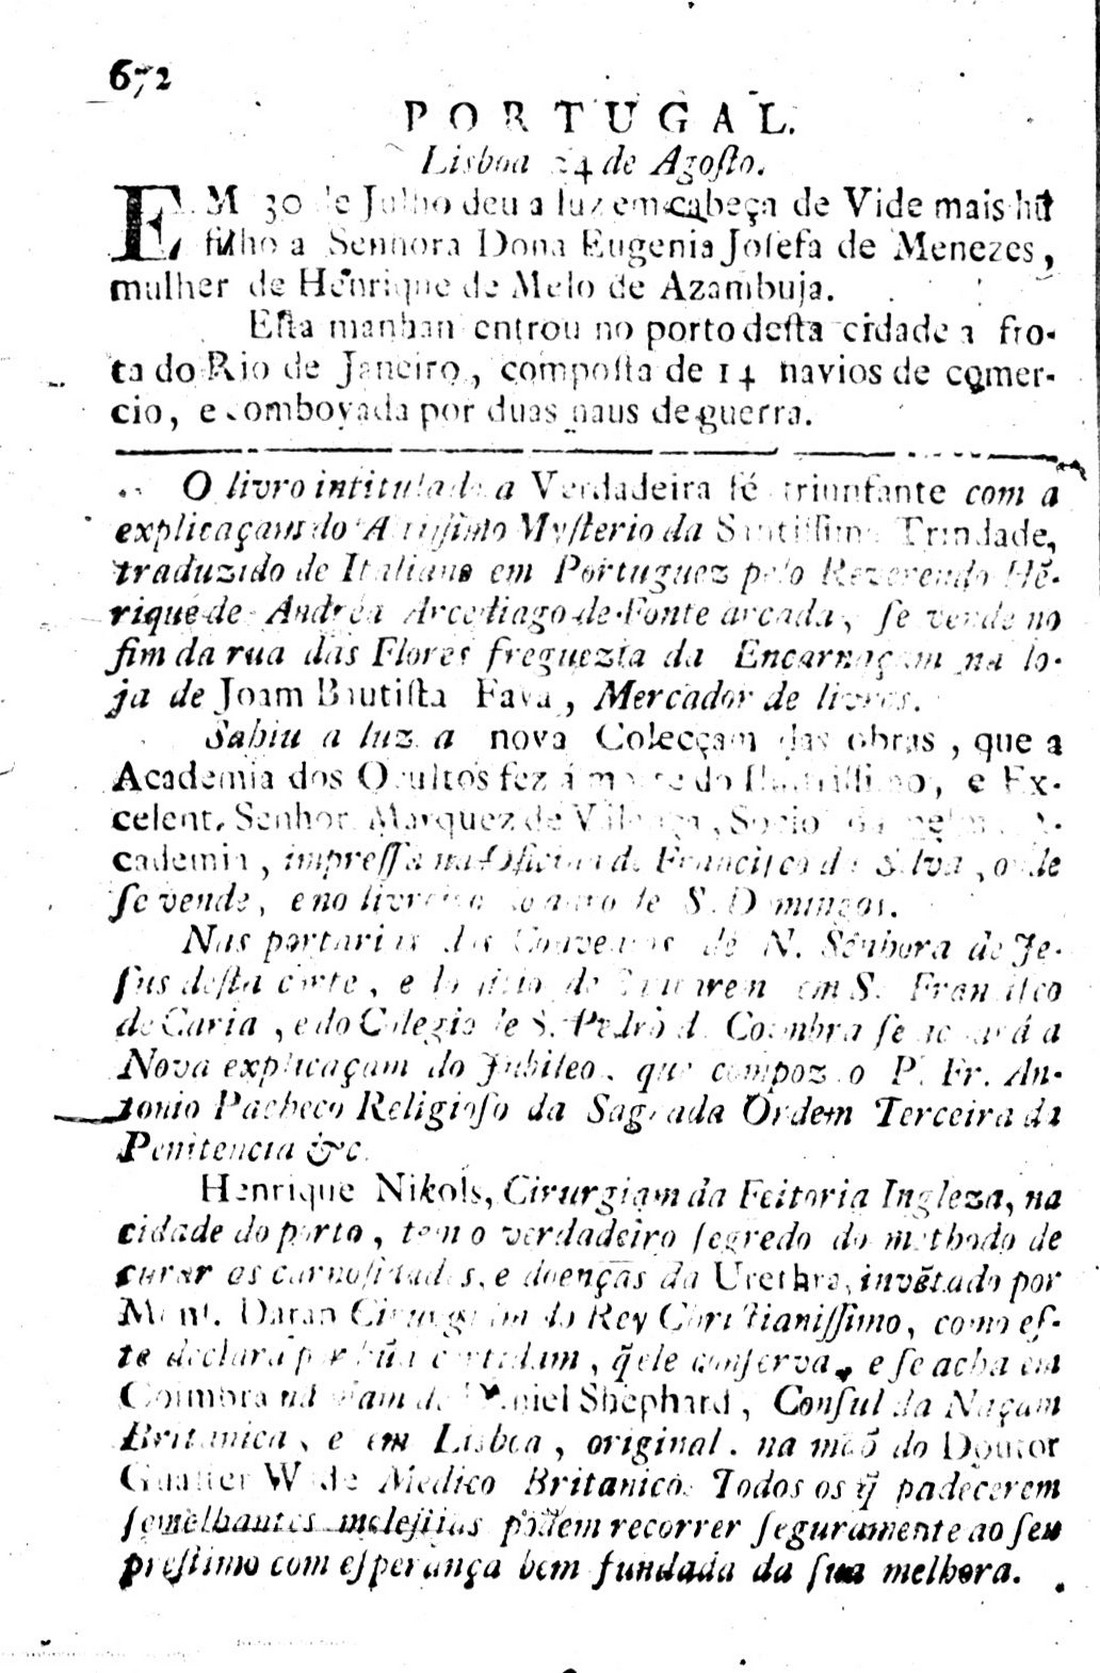 672
PORTUGAL.
Lisboa 24 de Agoſto.
EM 30 de Julho deu a luz em cabeça de Vide mais hũ
filho a Senhora Dona Eugenia Joſefa de Menezes,
mulher de Henrique de Melo de Azambuja.
Eſta manhan entrou no porto deſta cidade a fro-
ta do Rio de Janeiro, compoſta de 14 navios de comer-
cio, e comboyada por duas naus de guerra.
O livro intitulado a Verdadeira fé triunfante com a
explicaçam do Altiſſimo Myſterio da Santiſſima Trindade,
traduzido de Italiano em Portuguez pelo Reverendo Hẽ-
rique de Andréa Arcediago de Fonte arcada, ſe vende no
fim da rua das Flores freguezia da Encarnaçam na lo-
ja de Joam Bautiſta Fava, Mercador de livros.
Sahiu a luz a nova Colecçam das obras, que a
Academia dos Ocultos fez á morte do Illuſtriſſimo, e Ex-
celent. Senhor Marquez de Valença, Socio da A-
cademia, impreſſa na Oficina de Franciſco da Silva, onde
ſe vende, e no livreiro do adro de S. Domingos.
Nas portarias dos Conventos de N. Senhora de Je-
ſus deſta corte, e do ſitio de Santarem em S. Franciſco
de Caria, e do Colegio de S. Pedro d. Coimbra ſe achará a
Nova explicaçam do Jubileo, que compoz o P. Fr. An-
tonio Pacheco Religioſo da Sagrada Ordem Terceira da
Penitencia &c.
Henrique Nikols, Cirurgiam da Feitoria Ingleza, na
cidade do porto, tem o verdadeiro ſegredo do methodo de
curar as carnoſidades, e doenças da Urethra, invẽtado por
Monſ. Daran Cirurgiam do Rey Chriſtianiſſimo, como eſ-
te declara por hũa certidam, q̃ ele conſerva, e ſe acha em
Coimbra na mam de Daniel Shephard, Conſul da Naçam
Britanica, e em Lisboa, original. na maõ do Doutor
Gualter Wade Medico Britanico. Todos os q̃ padecerem
ſemelhantes moleſtias podem recorrer ſeguramente ao ſeu
preſtimo com eſperança bem fundada da ſua melhora.